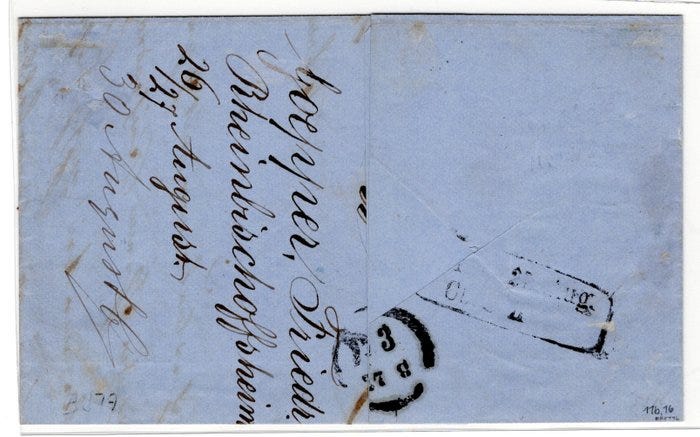 Goepper, Friedr.
Rheinbischoffsheim
26
/27 August.
30 Auguste
Aug.
3
8
116, 16